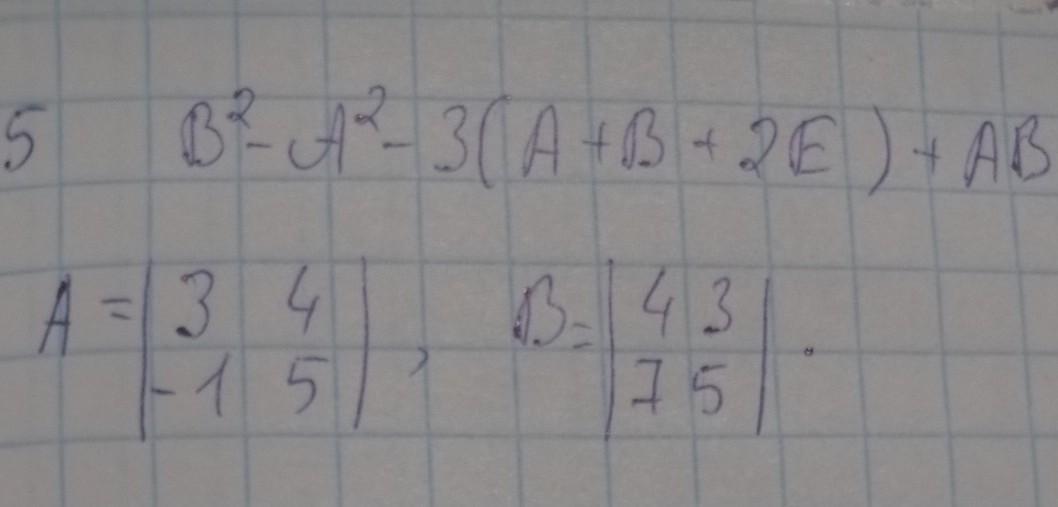 5 B² - A² - 3(A + B + 2E) + AB
A = |3 4|, B = |4 3|.
|-1 5| |7 5|